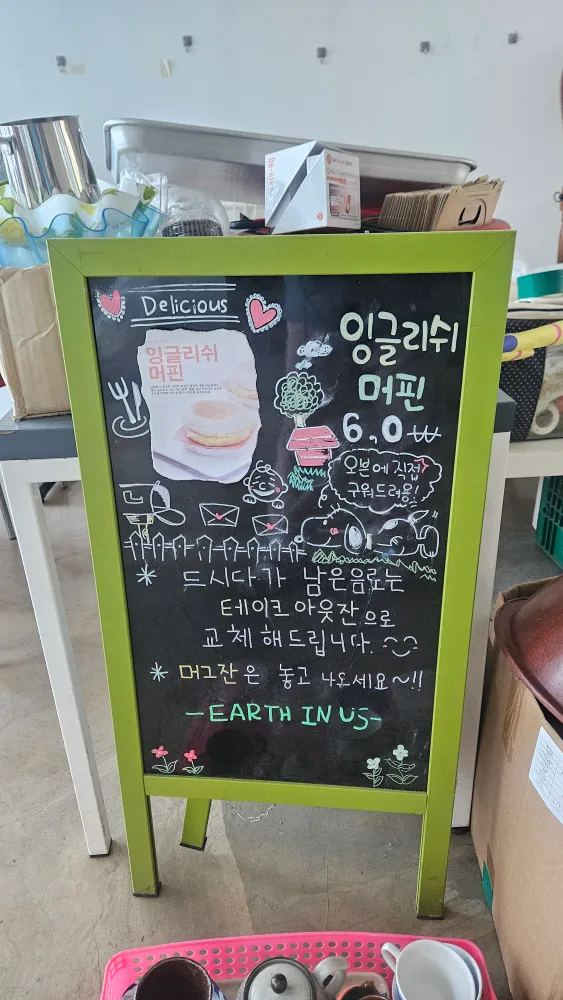 Delicious
잉글리쉬
머핀
잉글리쉬
머핀
6,0₩
오븐에 직접
구워드려용!
* 드시다가 남은음료는
테이크아웃잔으로
교체해드립니다.
* 머그잔은 놓고 나오세요~!!
-EARTH IN US-